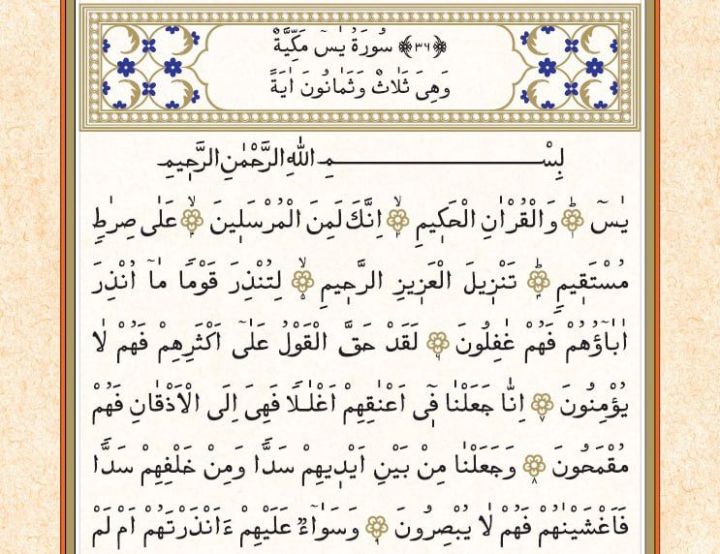 ﴿٣٦﴾ سُورَةُ يٰسٓ مَكِّيَّةٌ
وَهِىَ ثَلَاثٌ وَثَمَانُونَ اٰيَةً
بِسْمِ اللّٰهِ الرَّحْمٰنِ الرَّح۪يمِ
يٰسٓ وَالْقُرْاٰنِ الْحَك۪يمِ اِنَّكَ لَمِنَ الْمُرْسَل۪ينَ عَلٰى صِرَاطٍ
مُسْتَق۪يمٍ تَنْز۪يلَ الْعَز۪يزِ الرَّح۪يمِ لِتُنْذِرَ قَوْمًا مَٓا اُنْذِرَ
اٰبَٓاؤُ۬هُمْ فَهُمْ غَافِلُونَ لَقَدْ حَقَّ الْقَوْلُ عَلٰٓى اَكْثَرِهِمْ فَهُمْ لَا
يُؤْمِنُونَ اِنَّا جَعَلْنَا ف۪ٓى اَعْنَاقِهِمْ اَغْلَالًا فَهِىَ اِلَى الْاَذْقَانِ فَهُمْ
مُقْمَحُونَ ٨ وَجَعَلْنَا مِنْ بَيْنِ اَيْد۪يهِمْ سَدًّا وَمِنْ خَلْفِهِمْ سَدًّا
فَاَغْشَيْنَاهُمْ فَهُمْ لَا يُبْصِرُونَ ٩ وَسَوَٓاءٌ عَلَيْهِمْ ءَاَنْذَرْتَهُمْ اَمْ لَمْ